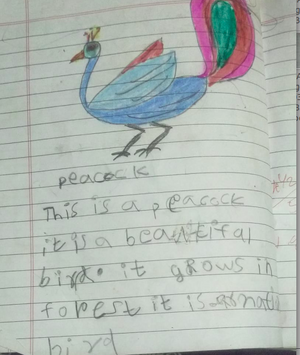 peacock
This is a peacock
it is a beautifal
bird. it grows in
forest it is a nati
bird